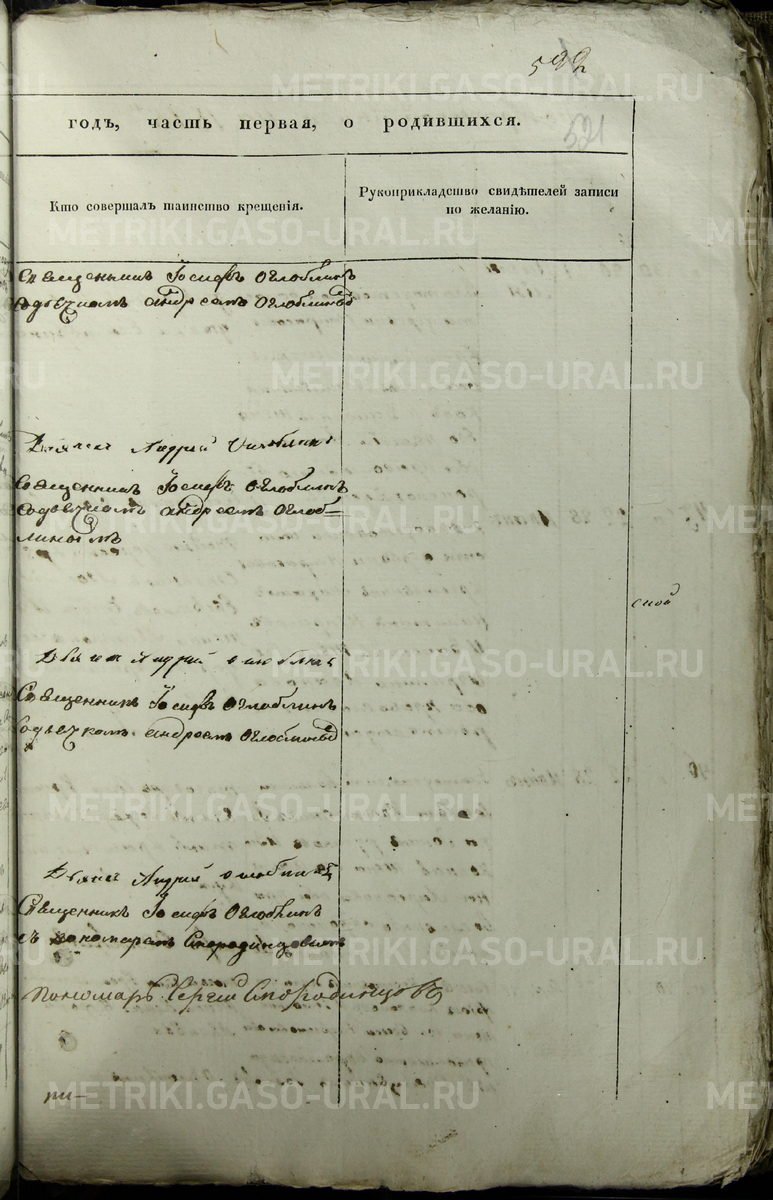 592
521
годъ, часть первая, о родившихся.
Кто совершалъ таинство крещенія.
Рукоприкладство свидѣтелей записи
по желанію.
Священникъ Іосифъ Оглоблинъ
содьячкомъ андреемъ Оглоблинымъ
Дьячекъ Андрей Оглоблинъ
Священникъ Іосифъ Оглоблинъ
содьячкомъ андреемъ Оглоб=
линымъ
Дьячекъ Андрей Оглоблинъ
Священникъ Іосифъ Оглоблинъ
содьячкомъ андреемъ Оглоблинымъ
Дьячекъ Андрей Оглоблинъ
Священникъ Іосифъ Оглоблинъ
съ пономаремъ Смородинцовымъ
пономарь Сергей Смородинцовъ
METRIKI.GASO-URAL.RU